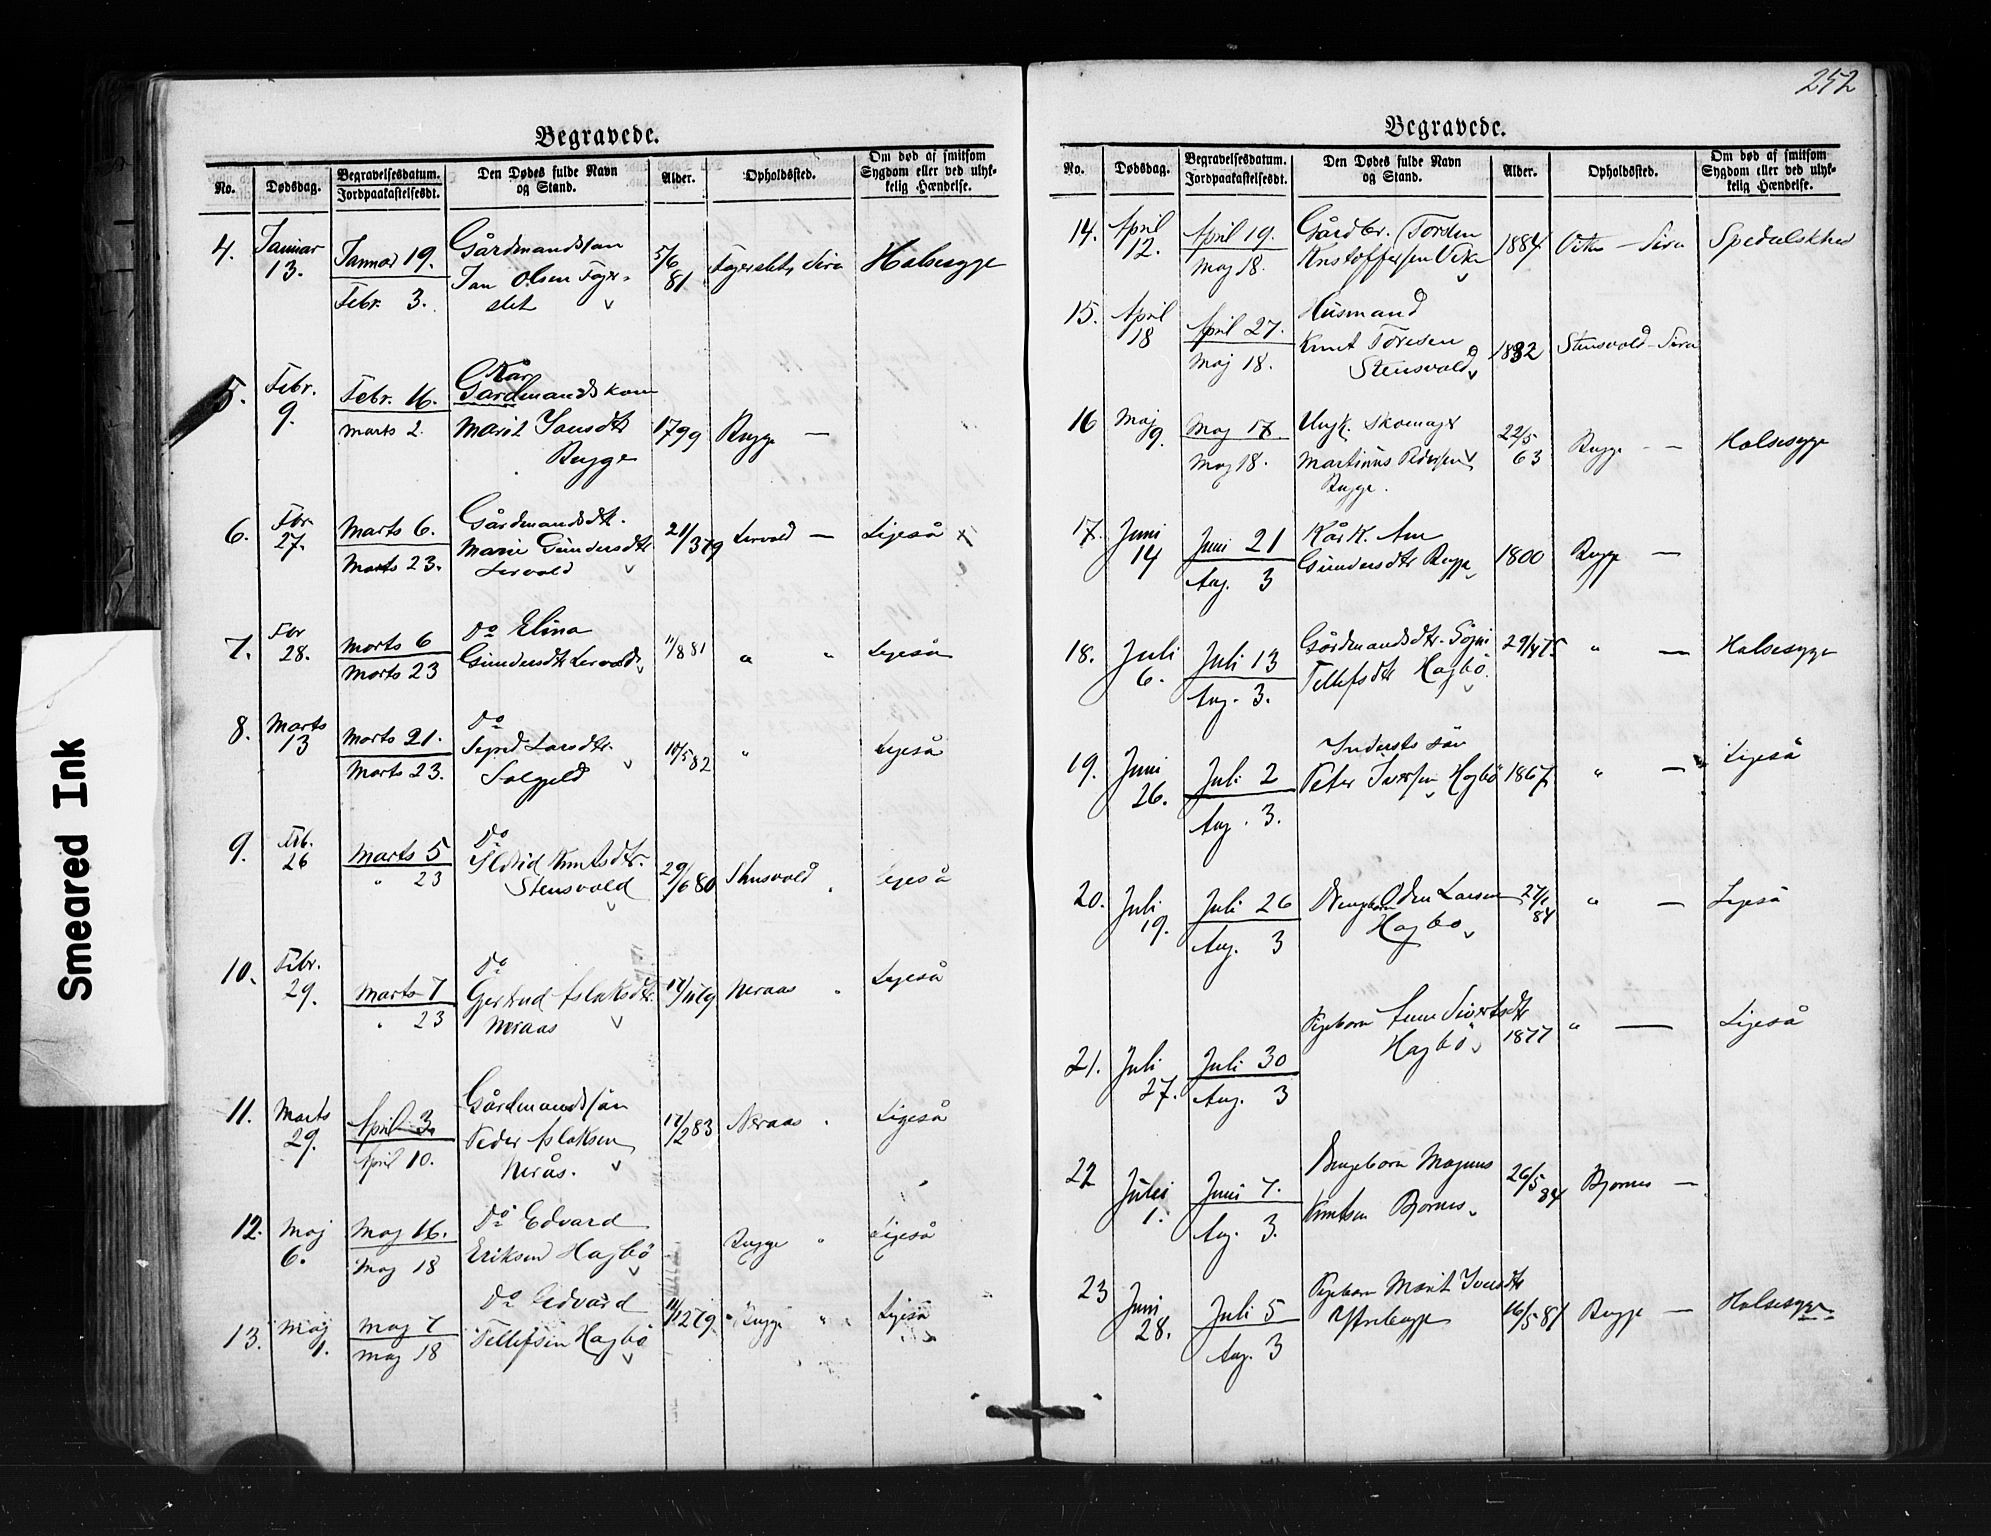 252
Begravede.
No.
Dødsdag.
Begravelsesdatum.
Jordpaakastelsesdt.
Den Dødes fulde Navn
og Stand.
Alder.
Opholdssted.
Om død af smitsom
Sygdom eller ved ulyk-
kelig Hændelse.
4.
Januar
13.
Januar 19.
Febr. 3.
Gårdmandssøn
Jan Olsen Fager-
slet
5/6
81
Fagerslet, Sira
Halsesyge
5.
Febr.
9.
Febr. 16.
Marts 2.
Kår
Gardmandskone
Marit Jonsdtr
Bugge
1799
Bugge —
6.
Febr
27.
Marts 6.
Marts 23.
Gårdmandsdtr.
Marie Gundersdtr
Lervold
21/379
Lervold —
Ligeså
7.
Febr
28.
Marts 6
Marts 23
Do Elina
Gundersdtr Lervold
11/881
" "
Ligeså
8.
Marts
13
Marts 21.
Marts 23.
Do
Sigrid Larsdtr.
Solgjeld
10/582
"
Ligeså
9.
Feb.
26
Marts 5
" 23
Do
Knutsdtr.
Stensvold
29/680
Stensvold "
Ligeså
10.
Febr.
29.
Marts 7
" 23
Do
Gertrud Aslaksdtr.
Neraas
Neraas "
Ligeså
11.
Marts
29.
April 3.
April 10.
Gårdmandssøn
Peder Aslaksen
Nerås.
17/283
Neraas "
Ligeså
12.
Maj
6.
Maj 16.
Maj 18
Do Edvard
Eriksen Hagbö
Bugge "
Ligeså
13.
Maj
1.
Maj 7
Maj 18
Do Edvard
Tellefsen Hagbö
11/1279
Bugge " "
Ligeså
Begravede.
No.
Dødsdag.
Begravelsesdatum.
Jordpaakastelsesdt.
Den Dødes fulde Navn
og Stand.
Alder.
Opholdssted.
Om død af smitsom
Sygdom eller ved ulyk-
kelig Hændelse.
14.
April
12.
April 19.
Maj 18.
Gårdbr. Torsten
Kristoffersen Vike
1884
Vike — Sira
Spedalskhed
15.
April
18
April 27.
Maj 18.
Husmand
Knut Toresen
Stensvold
1832
Stensvold — Sira
16
Maj
9.
Maj 17
Maj 18.
Ungk. Skomager
Martinus Pedersen
Bugge.
22/5
63
Bugge —
Halsesyge
17.
Juni
14
Juni 21
Aug. 3
Kårk. Ane
Gundersdtr Bugge
1800
Bugge —
18.
Juli
6.
Juli 13
Aug. 3.
Gårdmandsdtr.
Tellefsdtr Hagbö.
29/475
" —
Halsesyge
19.
Juni
26.
Juli 2
Aug. 3.
Indersts sön
Peter Iversen Hagbö
1867
" —
Ligeså
20.
Juli
19.
Juli 26
Aug. 3
Drengebarn Oden Larsen
Hagbö
27/1
84
" —
Ligeså
21.
Juli
27.
Juli 30
Aug. 3
Pigebarn Ane Sivertsdtr
Hagbö
1877
" —
Ligeså
22
Juli
1.
Juni 7.
Aug. 3.
Drengebarn Magnus
Knutsen Bjørnes
26/5
84
Bjørnes —
23
Juni
28.
Juli 5
Aug. 3
Pigebarn Marit Iversdtr
Ystebugge
16/581
Bugge —
Halsesyge
Smeared Ink